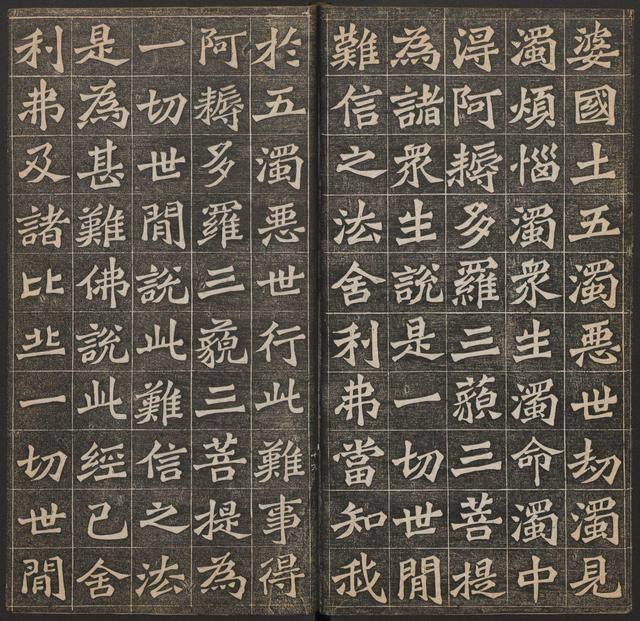 婆國土五濁悪世劫濁見
濁煩惱濁衆生濁命濁中
淂阿耨多羅三藐三菩提
為諸衆生說是一切世閒
難信之法舍利弗當知我
於五濁悪世行此難事得
阿耨多羅三藐三菩提為
一切世閒說此難信之法
是為甚難佛說此經已舍
利弗及諸比丘一切世閒